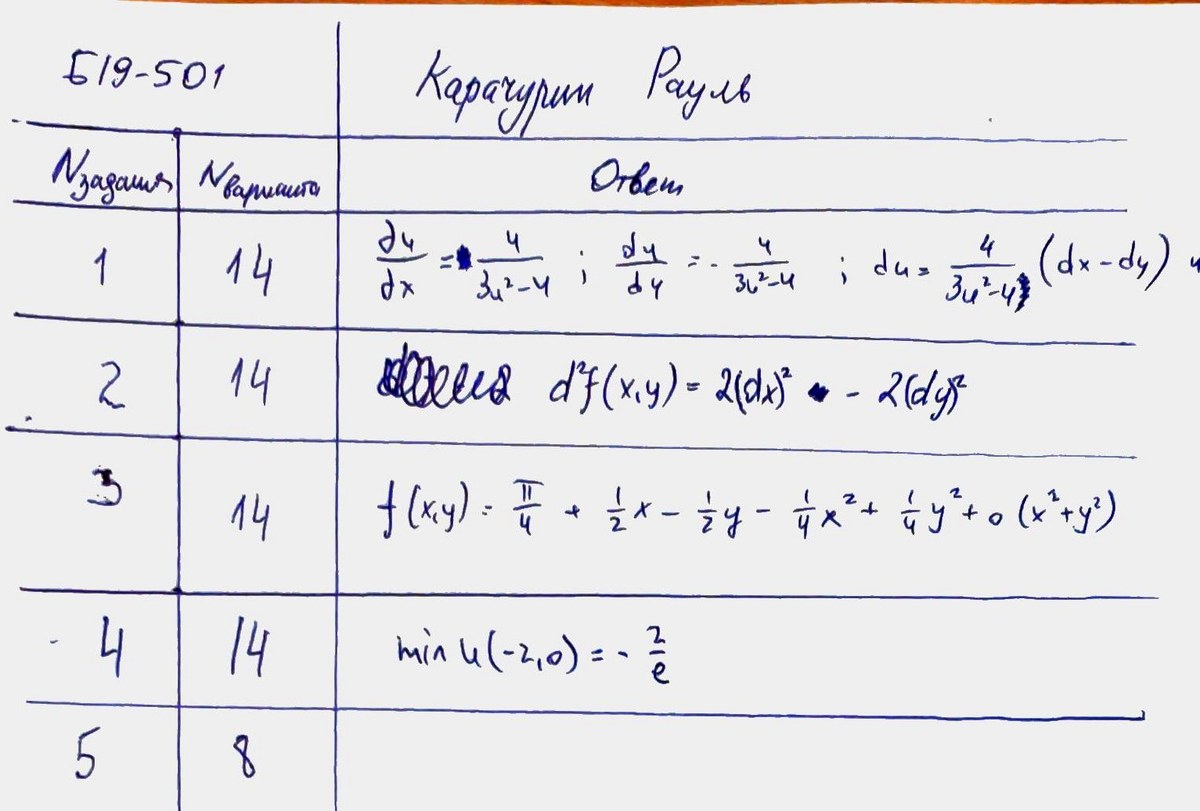 Б19-501 Карачурин Рауль
Nзадания Nварианта Ответ
1 14 ∂u/∂x = 4/(3u²-4) ; du/dy = - 4/(3u²-4) ; du = 4/(3u²-4) (dx-dy)
2 14 d²f(x,y) = 2(dx)² - 2(dy)²
3 14 f(x,y) = π/4 + 1/2 x - 1/2 y - 1/4 x² + 1/4 y² + o (x²+y²)
4 14 min u(-2,0) = - 2/e
5 8